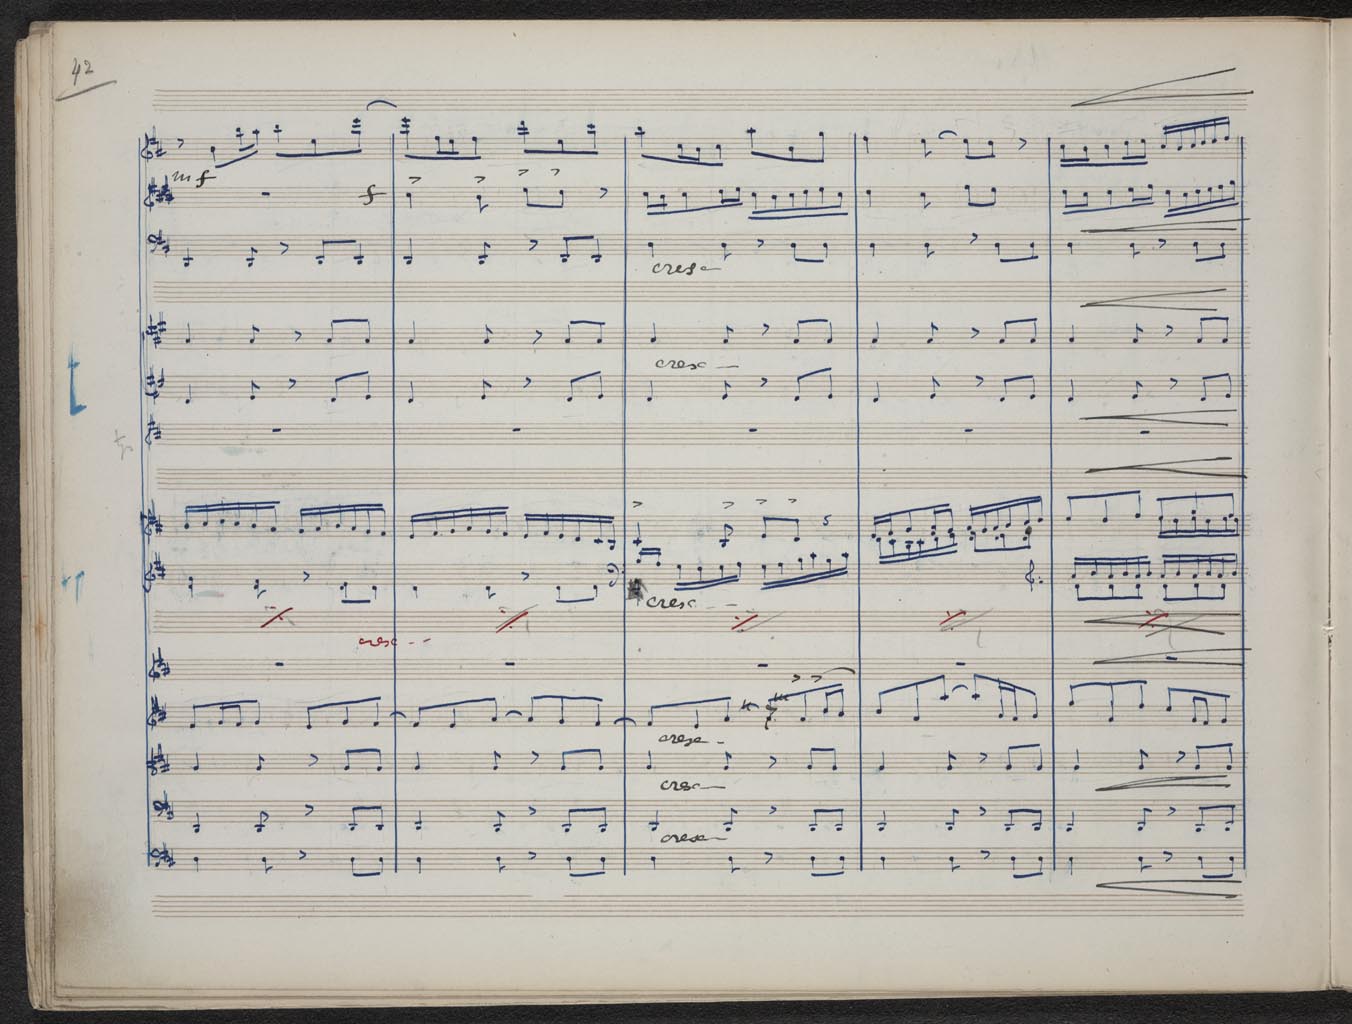 42
mf
f
cresc
cresc
5
cresc
cresc
cresc
cresc
cresc